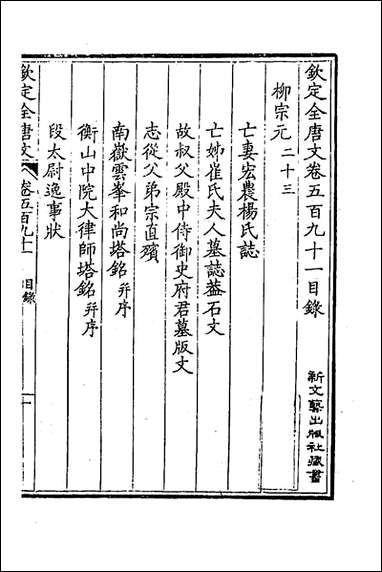 欽定全唐文卷五百九十一目錄
新文藝出版社藏書
柳宗元二十三
亡妻宏農楊氏誌
亡姊崔氏夫人墓誌葢石文
故叔父殿中侍御史府君墓版文
志從父弟宗直殯
南嶽雲峯和尚塔銘并序
衡山中院大律師塔銘并序
段太尉逸事狀
欽定全唐文
卷五百九十一
目錄
一